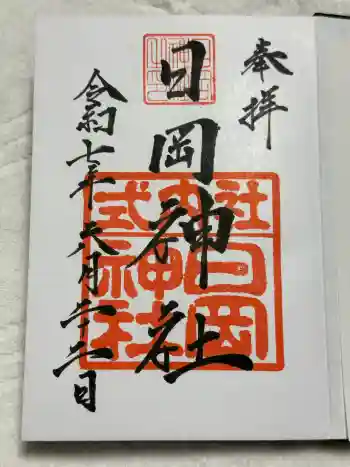 奉拝
日岡神社
令和七年六月二十二日
式内社
日岡神社